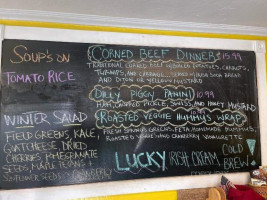 SOUP'S ON
TOMATO RICE
WINTER SALAD
FIELD GREENS, KALE,
GOAT CHEESE, DRIED
CHERRIES, POMEGRANATE
SEEDS, MAPLE PECANS &
CORNED BEEF DINNER $15.99
TRADITIONAL CORNED BEEF, POTATOES, CARROTS,
TURNIPS, AND CABBAGE. IRISH SODA BREAD
AND DIJON OR YELLOW MUSTARD
DILLY PIGGY PANINI 10.99
HAM, DILL PICKLE, SWISS, AND HONEY MUSTARD
ROASTED VEGGIE HUMMUS WRAP
FRESH GREENS, FETA, HOMEMADE HUMMUS,
ROASTED VEGGIES AND CRANBERRY VINAIGRETTE
LUCKY IRISH CREAM COLD
BREW!